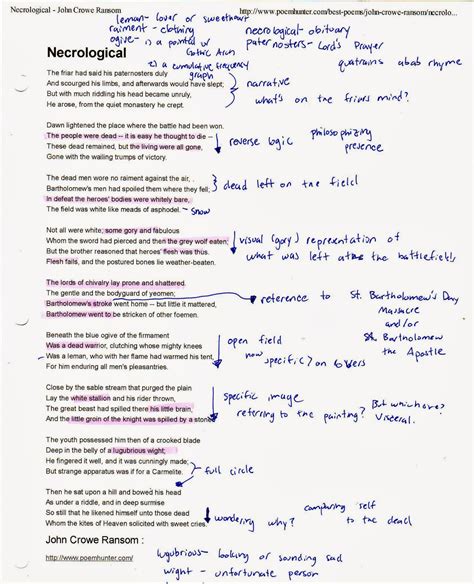 Necrological - John Crowe Ransom
http://www.poemhunter.com/best-poems/john-crowe-ransom/necrolo...
leman- lover or sweetheart
raiment - clothing
ogive - is a pointed or
Gothic Arch
2) a cumulative frequency
graph
necrological - obituary
paternosters - Lord's Prayer
quatrains abab rhyme
Necrological
The friar had said his paternosters duly
And scourged his limbs, and afterwards would have slept;
But with much riddling his head became unruly,
He arose, from the quiet monastery he crept.
narrative
what's on the friars mind?
Dawn lightened the place where the battle had been won.
The people were dead -- it is easy he thought to die --
These dead remained, but the living were all gone,
Gone with the wailing trumps of victory.
reverse logic
philosophizing
presence
The dead men wore no raiment against the air,
Bartholomew's men had spoiled them where they fell;
In defeat the heroes' bodies were whitely bare,
The field was white like meads of asphodel.
- snow
dead left on the field
Not all were white; some gory and fabulous
Whom the sword had pierced and then the grey wolf eaten;
But the brother reasoned that heroes' flesh was thus.
Flesh fails, and the postured bones lie weather-beaten.
visual (gory) representation of
what was left on the battlefield
The lords of chivalry lay prone and shattered.
The gentle and the bodyguard of yeomen;
Bartholomew's stroke went home -- but little it mattered,
Bartholomew went to be stricken of other foemen.
reference to St. Bartholomew's Day
Massacre
and/or
St. Bartholomew
the Apostle
Beneath the blue ogive of the firmament
Was a dead warrior, clutching whose mighty knees
Was a leman, who with her flame had warmed his tent,
For him enduring all men's pleasantries.
open field
now specific? on lovers
Close by the sable stream that purged the plain
Lay the white stallion and his rider thrown,
The great beast had spilled there his little brain,
And the little groin of the knight was spilled by a stone.
specific image
referring to the painting?
But which one?
Visceral.
The youth possessed him then of a crooked blade
Deep in the belly of a lugubrious wight;
He fingered it well, and it was cunningly made;
But strange apparatus was if for a Carmelite.
full circle
Then he sat upon a hill and bowed his head
As under a riddle, and in deep surmise
So still that he likened himself unto those dead
Whom the kites of Heaven solicited with sweet cries.
wondering why?
comparing self
to the dead
John Crowe Ransom :
http://www.poemhunter.com/
lugubrious- looking or sounding sad
wight - unfortunate person